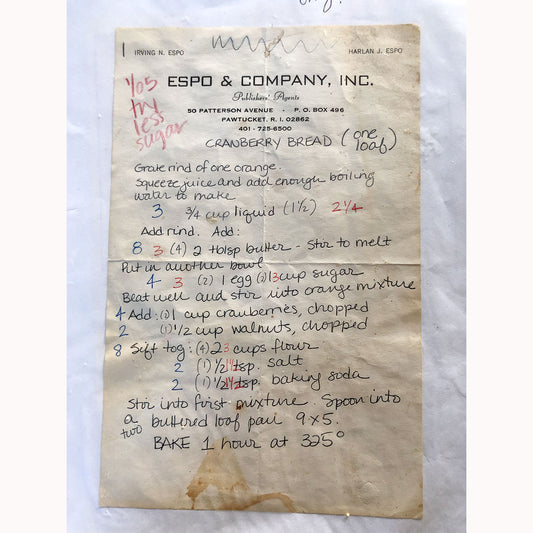 IRVING N. ESPO
HARLAN J. ESPO
1/05
try
less
sugar
ESPO & COMPANY, INC.
Publishers' Agents
50 PATTERSON AVENUE · P. O. BOX 496
PAWTUCKET, R. I. 02862
401 - 725-6500
CRANBERRY BREAD (one loaf)
Grate rind of one orange.
Squeeze juice and add enough boiling
water to make
3 3/4 cup liquid (1 1/2) 2 1/4
Add rind. Add:
8 3 (4) 2 tblsp butter - Stir to melt
Put in another bowl
4 3 (2) 1 egg (2) 1 3 cup sugar
Beat well and stir into orange mixture
4 Add: (2) 1 cup cranberries, chopped
2 (1) 1/2 cup walnuts, chopped
8 Sift tog: (4) 2 3 cups flour
2 (1) 1/2 1 1/2 tsp. salt
2 (1) 1/2 1 1/2 tsp. baking soda
Stir into first mixture. Spoon into
a two buttered loaf pan 9x5.
BAKE 1 hour at 325°